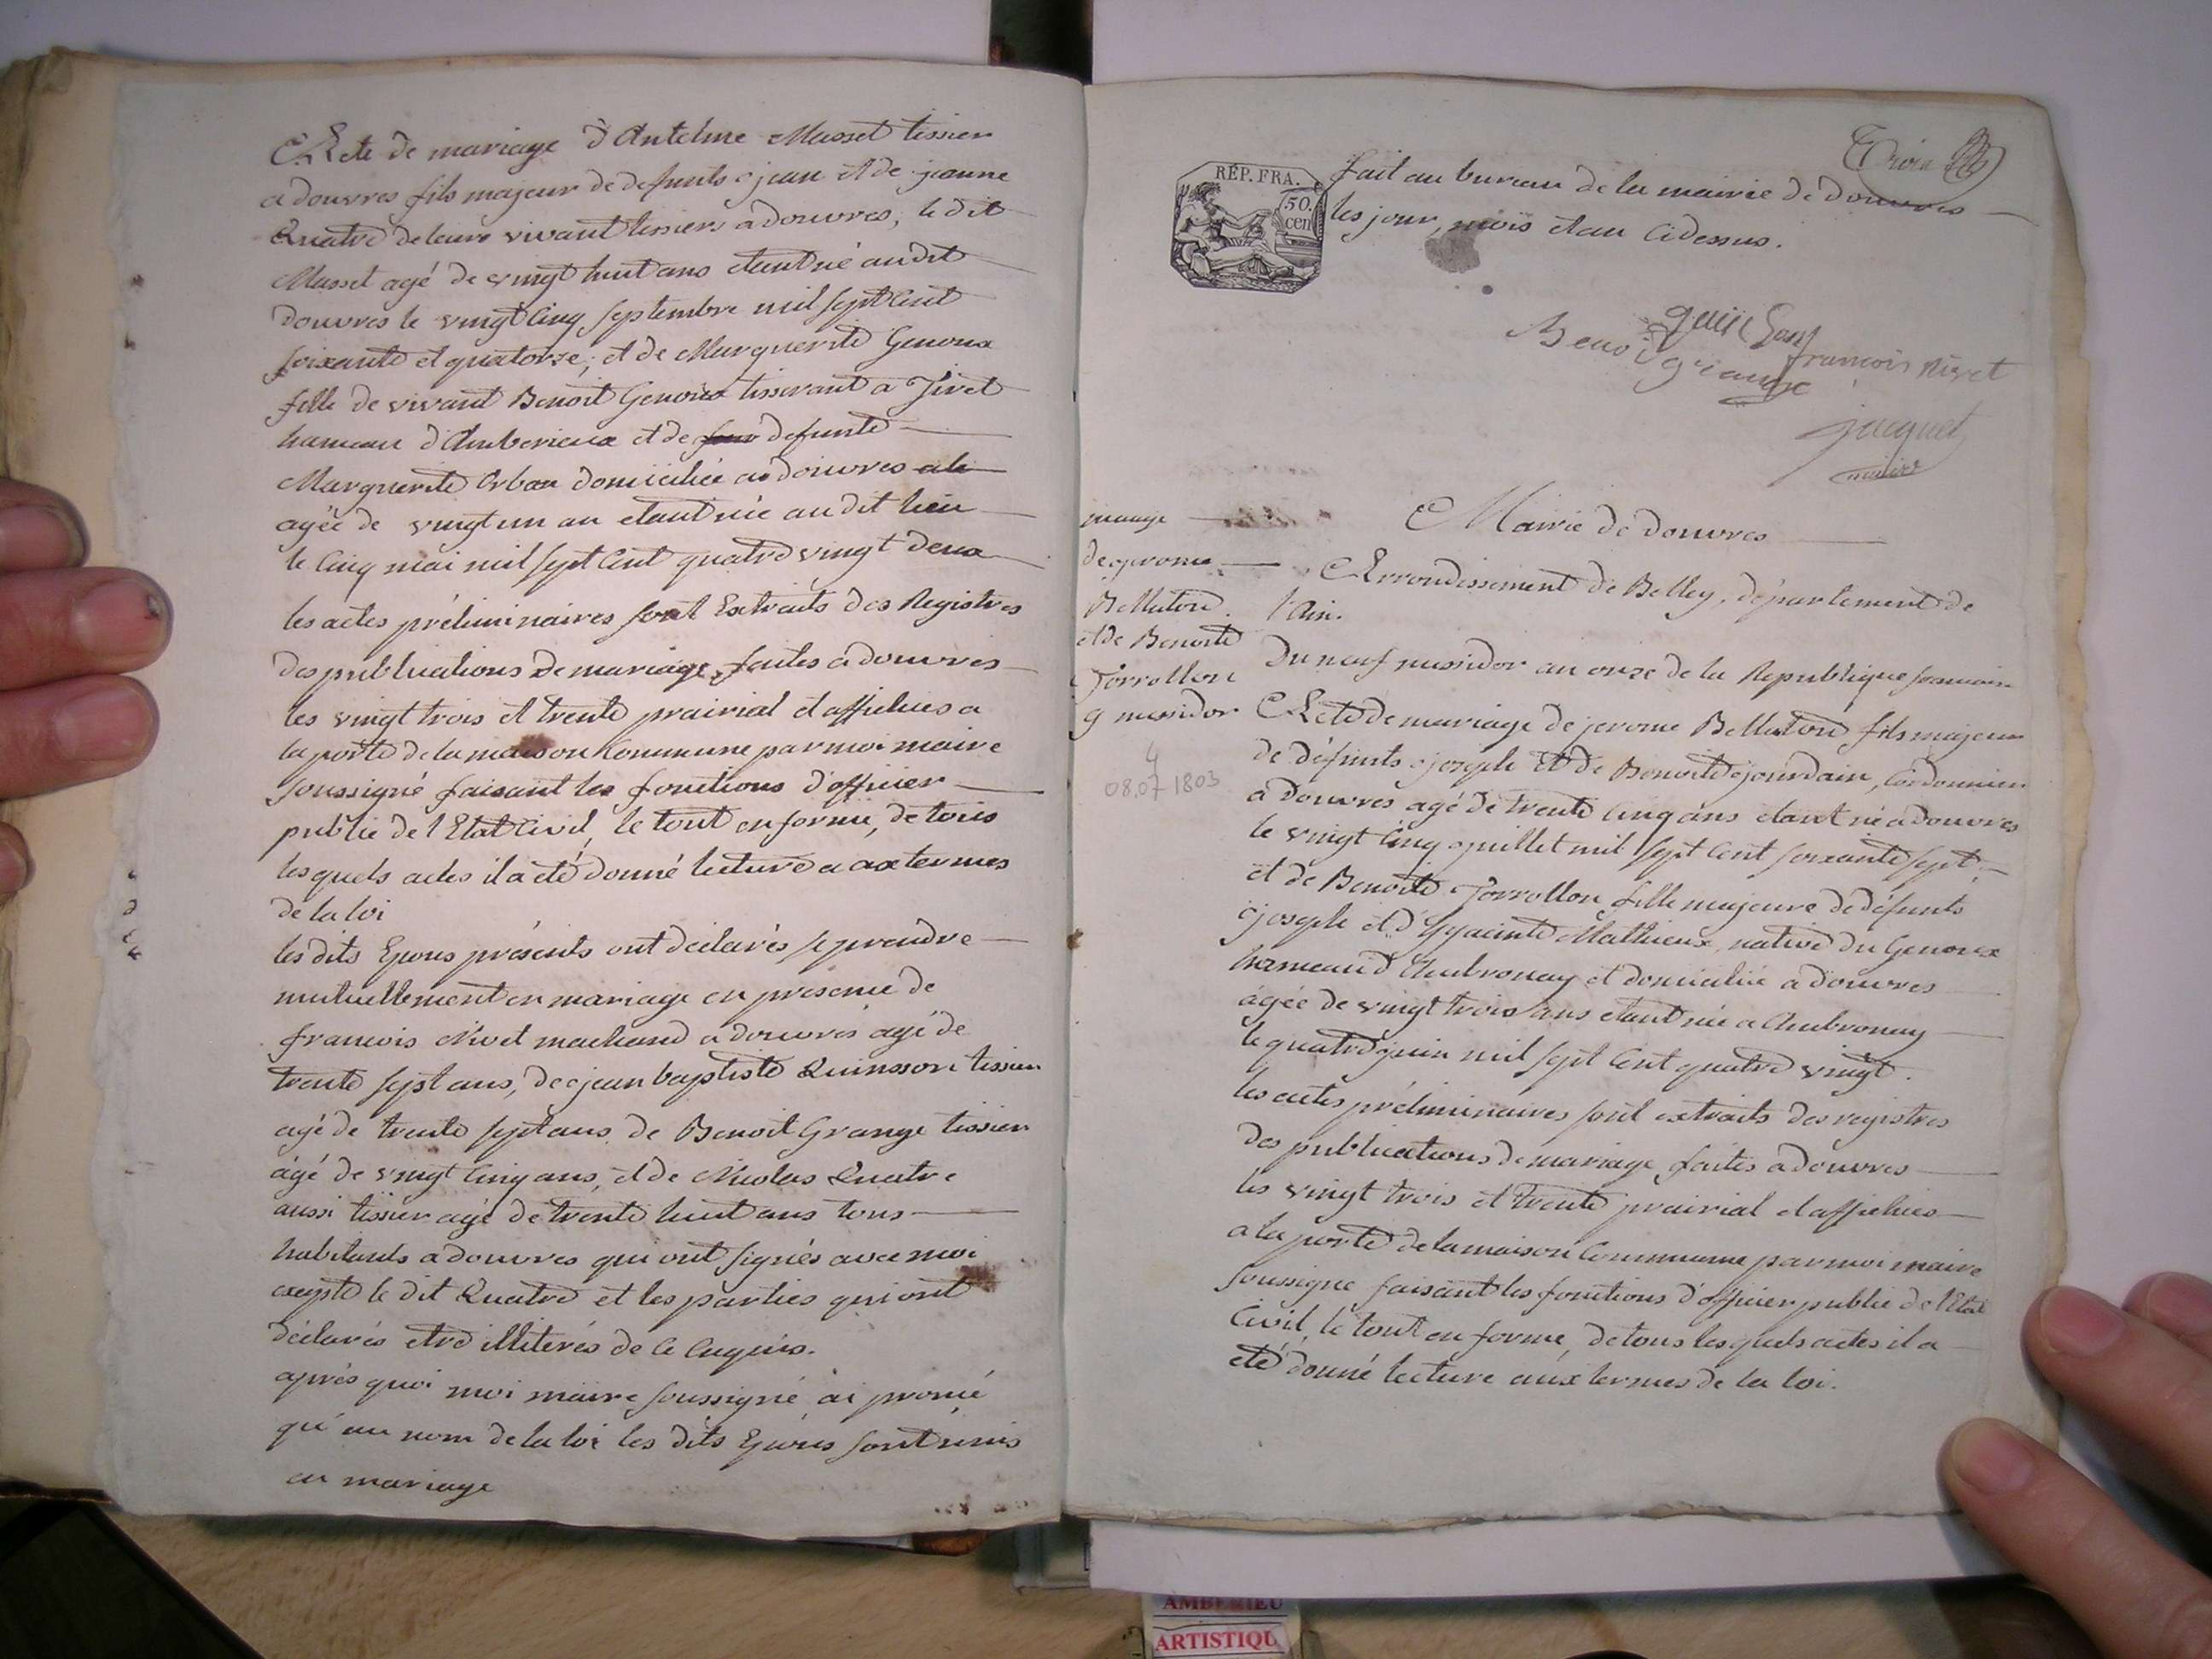 Acte de mariage d'Antelme Masset tissier
a douvres fils majeur de defunts jean et de jeanne
Quatre de leurs vivant tissiers a douvres, le dit
Masset agé de vingt huit ans etant né au dit
douvres le vingt cinq septembre mil sept cent
soixante et quatorze; et de Marguerite Genoux
fille de vivant Benoit Genoux tisserant a Tiret
hameau d'Amberieux et de defunte
Marguerite Orban domiciliée a douvres
agée de vingt un an etant née au dit lieu
le cinq mai mil sept cent quatre vingt deux
les actes préliminaires sont Extraits des Registres
des publications de mariage, faites a douvres
les vingt trois et trente prairial et affichées a
la porte de la maison Commune par moi maire
soussigné faisant les fonctions d'officier
public de l'Etat Civil, le tout en forme, de tous
lesquels actes il a été donné lecture a ax termes
de la loi
les dits Epoux présents ont déclarés se prendre
mutuellement en mariage en présence de
francois Nivet machand a douvres agé de
trente sept ans, de jean baptiste Quinsson tissier
agé de trente sept ans, de Benoit Grange tissier
âgé de vingt cinq ans, et de Nicolas Quatre
aussi tissier agé de trente huit ans tous
habitants a douvres qui ont signés avec moi
excepté le dit Quatre et les parties qui ont
déclarés etre illiterés de ce Enquis.
après quoi moi maire soussigné ai pronçé
qu'au nom de la loi les dits Epoux sont unis
en mariage
Trois
RÉP. FRA.
50.
cen
fait au bureau de la mairie de Douvres
les jour, mois et an ci dessus.
quinsson
Benoit grange
francois nivet
jacquet
maire
Mairie de douvres
Arrondissement de Belley, département de
l'Ain.
mariage
de jerome
Bellaton
et de Benoite
Torrollon
9 messidor
4
08.07 1803
Du neuf messidor an onze de la Republique francaise
Acte de mariage de jerome Bellaton fils majeur
de défunts joseph et de Benoite jourdain, Cordonnier
a douvres agé de trente cinq ans etant né a douvres
le vingt cinq juillet mil sept cent soixante sept,
et de Benoite Torrollon fille majeure de défunts
joseph et d'hyacinte Mathieux, native du Genoux
hameau d'Ambronay et domiciliée a douvres
âgée de vingt trois ans etant née a Ambronay
le quatre juin mil sept cent quatre vingt.
les actes préliminaires sont extraits des registres
des publications de mariage, faites a douvres
les vingt trois et trente prairial et affichées
a la porte de la maison Commune par moi maire
soussigné faisant les fonctions d'officier public de l'Etat
Civil, le tout en forme, de tous lesquels actes il a
été donné lecture aux termes de la loi.
AMBERIEU
ARTISTIQU